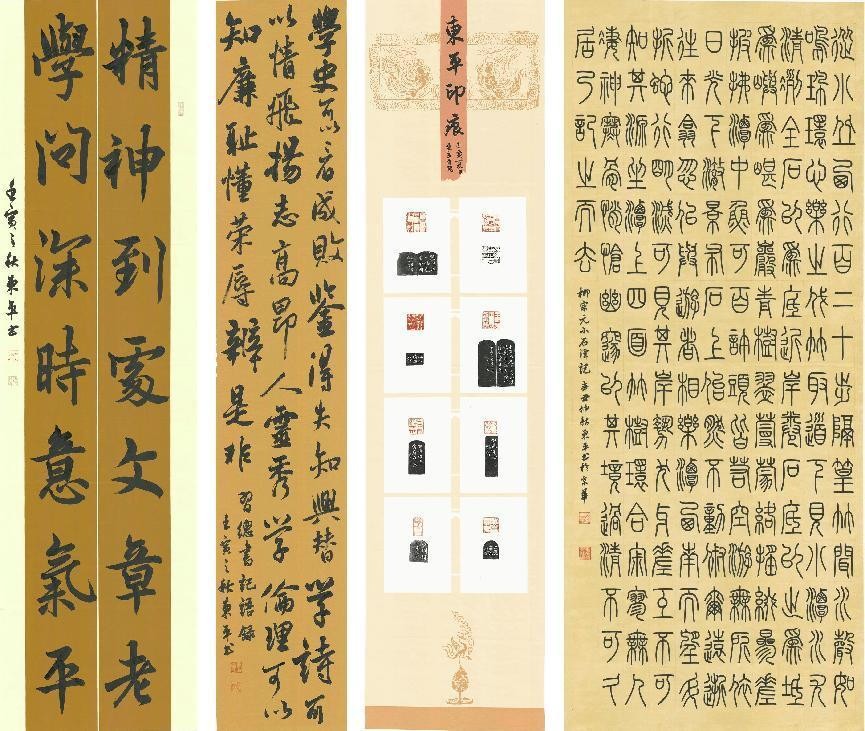 精神到處文章老
學問深時意氣平
壬寅之秋東平書
學史可以看成敗鑒得失知興替學詩可
以情飛揚志高昂人靈秀學倫理可以
知廉恥懂榮辱辨是非
習總書記語錄
壬寅之秋東平書
東平印痕
從小丘西行百二十步隔篁竹聞水聲如
鳴珮環心樂之伐竹取道下見小潭水尤
清洌全石以為底近岸卷石底以出為坻
為嶼為嵁為巖青樹翠蔓蒙絡搖綴參差
披拂潭中魚可百許頭皆若空游無所依
日光下澈影布石上佁然不動俶爾遠逝
往來翕忽似與遊者相樂潭西南而望斗
折蛇行明滅可見其岸勢犬牙差互不可
知其源坐潭上四面竹樹環合寂寥無人
淒神寒骨悄愴幽邃以其境過清不可久
居乃記之而去
柳宗元小石潭記 辛丑仲秋東平書於京華